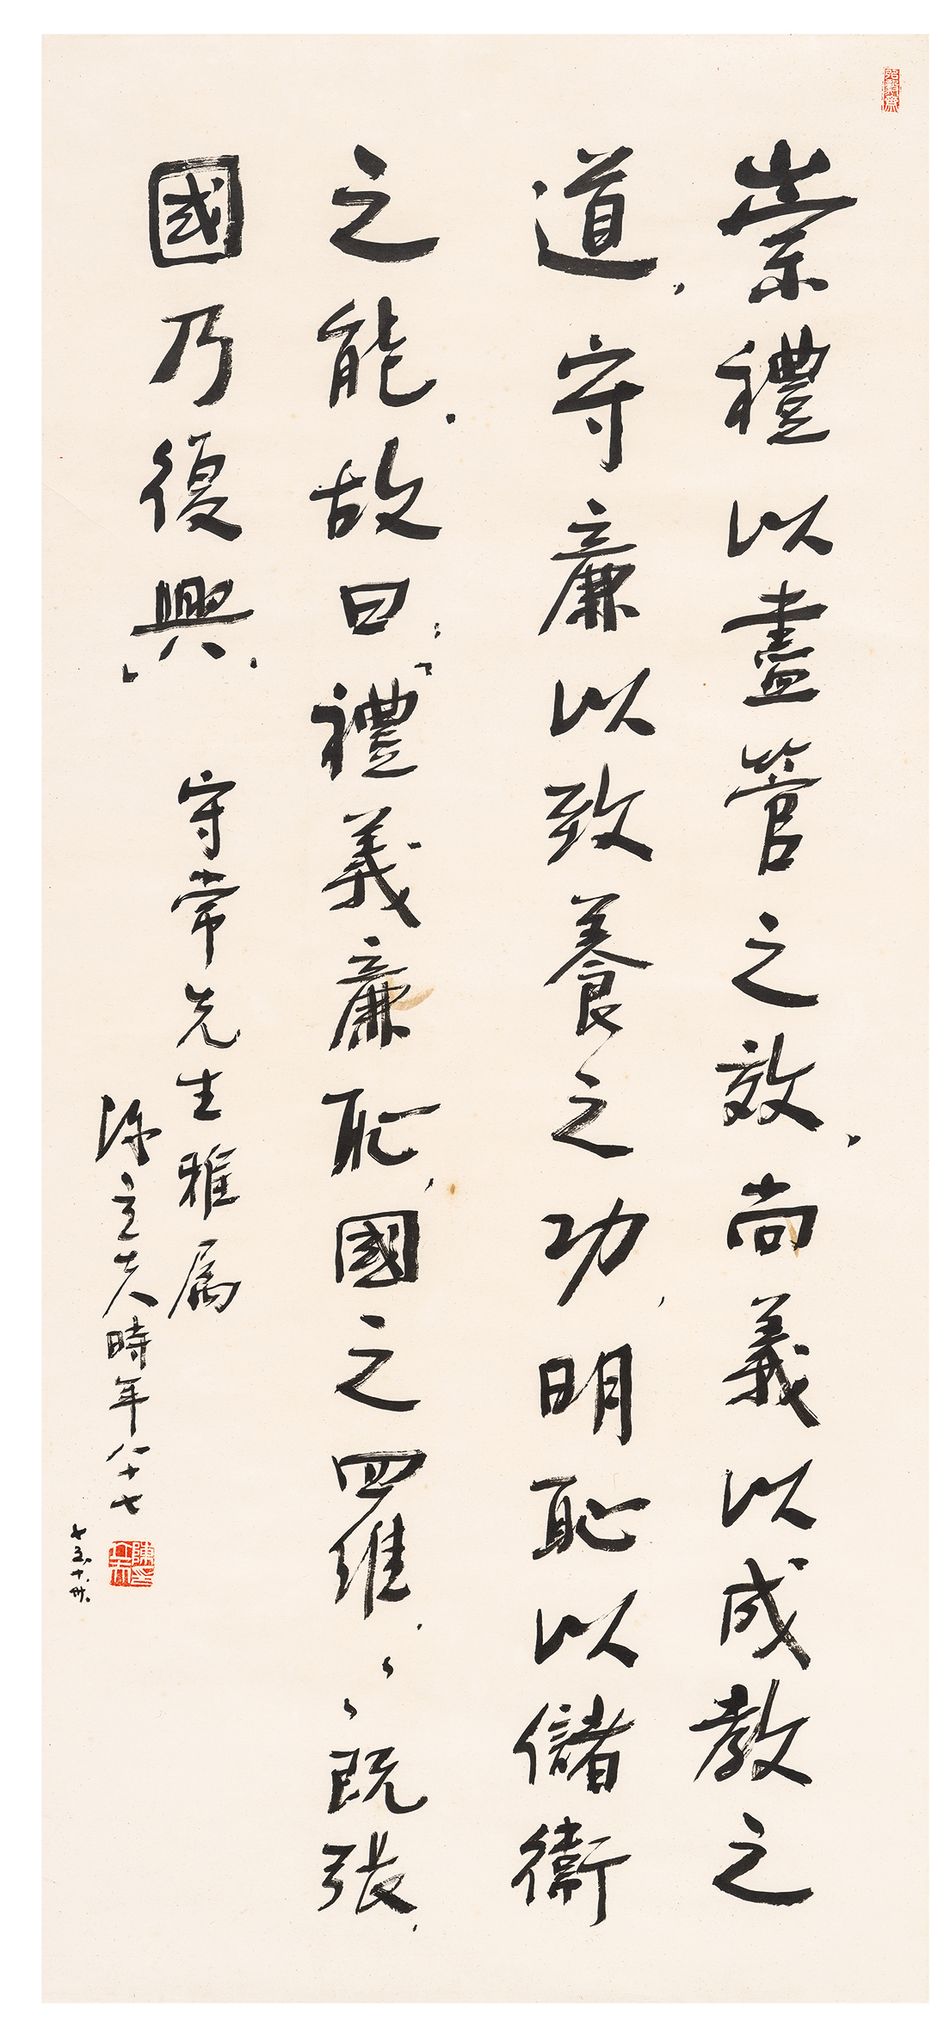 崇禮以盡管之效，尚義以成教之
道，守廉以致養之功，明恥以儲衛
之能。故曰：「禮義廉恥，國之四維，、、既張，
國乃復興。」
守常先生雅屬
陳立夫時年八十七
七五、十、卅、
陳立夫印